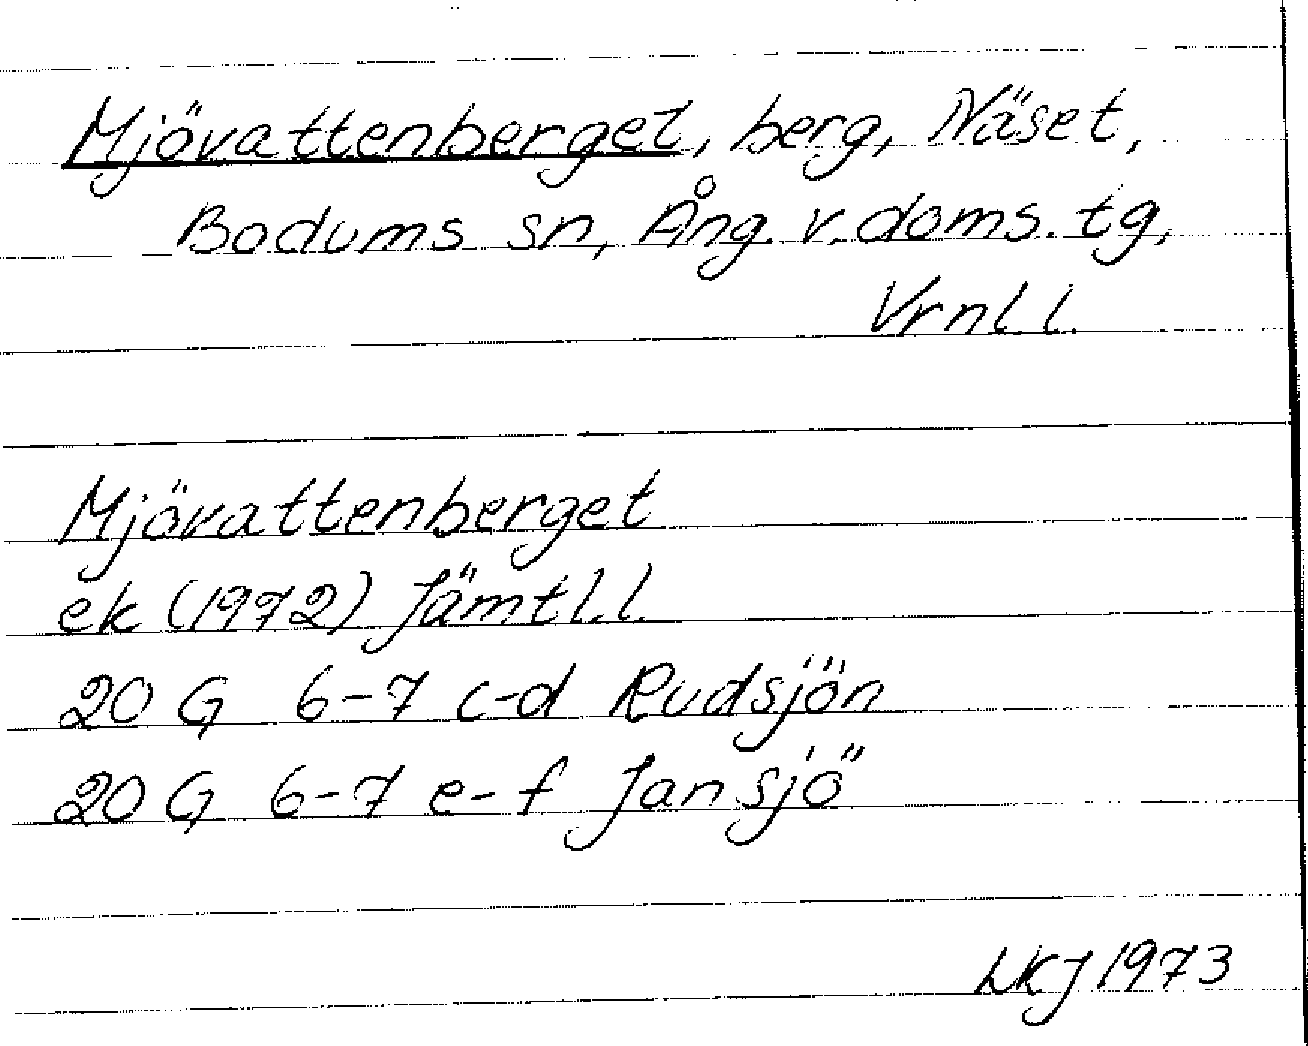 Mjövattenberget, berg, Näset,
Bodums sn, Ång. v. doms. tg,
Vrnl. l.
Mjövattenberget
ek (1972) Jämtl. l.
20 G 6-7 c-d Rudsjön
20 G 6-7 e-f Jansjö
LKJ 1973